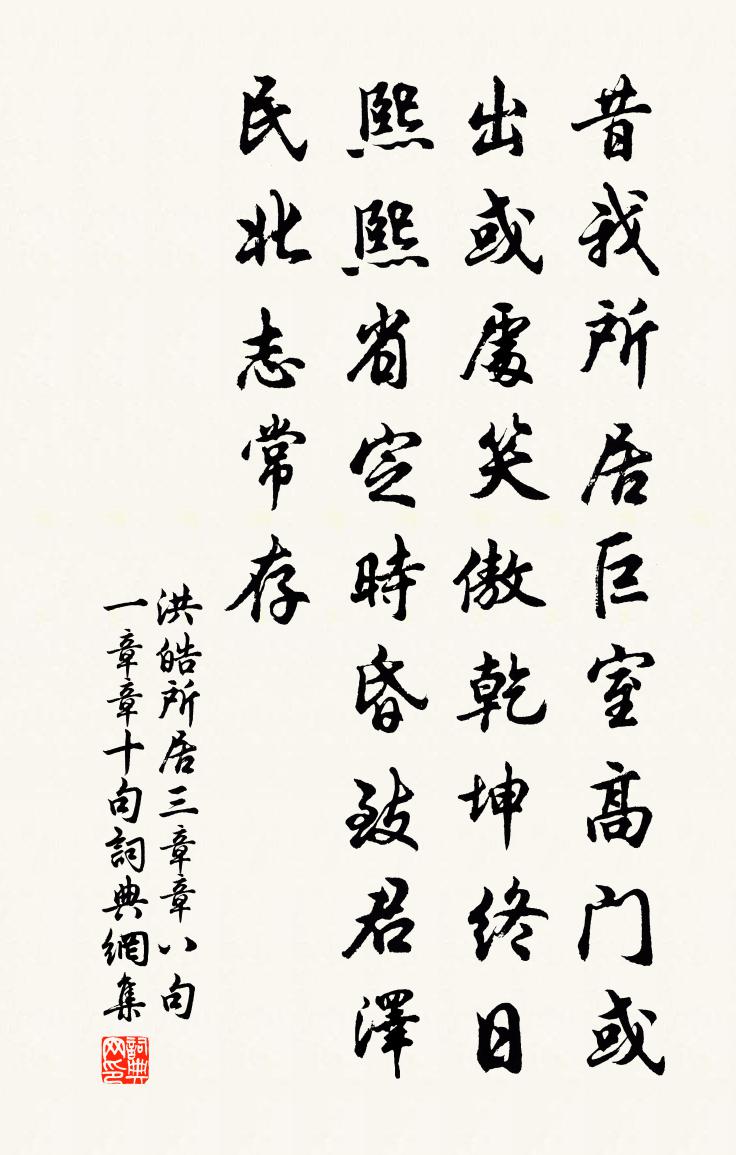 昔我所居巨室高门或
出或處笑傲乾坤終日
熙熙省定時昏致君澤
民此志常存
洪皓所居三章章八句
一章章十句詞典網集
詞典网印